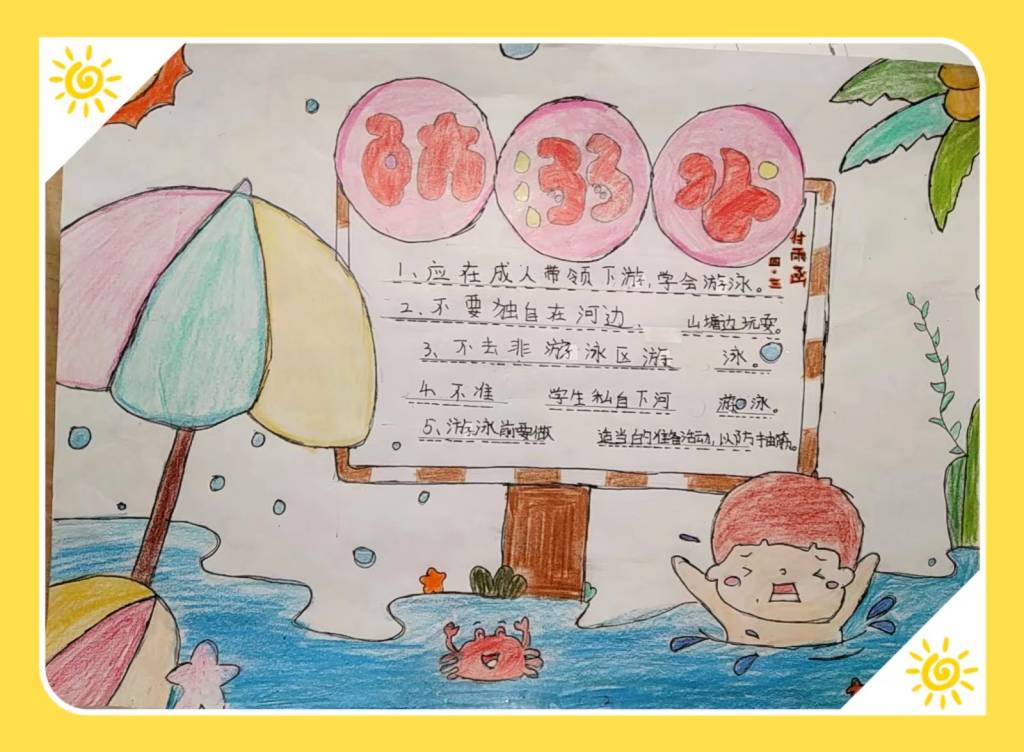 防溺水
付雨函
四.三
1、应在成人带领下游,学会游泳。
2、不要独自在河边、山塘边玩耍。
3、不去非游泳区游泳。
4、不准学生私自下河游泳。
5、游泳前要做适当的准备活动,以防抽筋。